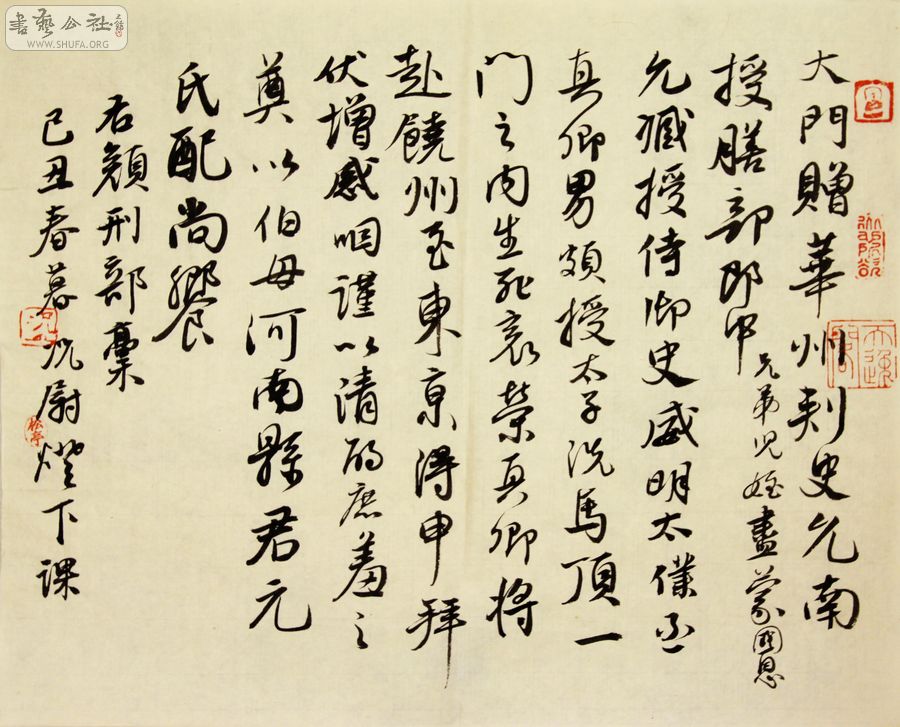 書藝公社
WWW.SHUFA.ORG
大門贈華州刺史允南
授膳部郎中兄弟兒姪盡蒙國恩
允臧授侍御史威明太僕丞
真卿男頗授太子洗馬頂一
門之内生死哀榮真卿將
赴饒州至東京得申拜
伏增感咽謹以清酌庶羞之
奠以伯母河南縣君元
氏配尚饗
右顏刑部稾
己丑春暮尉燈下課
松亭